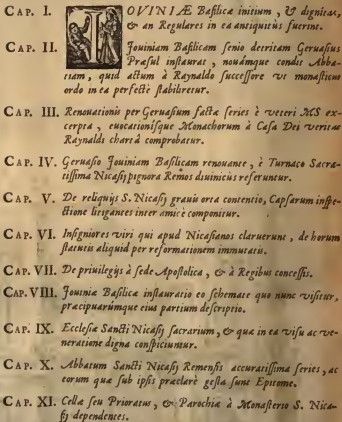 CAP. I. IOVINIÆ Basilicæ initium, & dignitas,
& an Regulares in ea antiquitùs fuerint.
CAP. II. Jouiniam Basilicam senio detritam Geruasius
Præsul instaurat, nouámque condit Abba-
tiam, quid actum à Raynaldo successore vt monasticus
ordo in ea perfectè stabiliretur.
CAP. III. Renouationis per Geruasium facta series è veteri MS ex-
cerpta, euocationisque Monachorum à Casa Dei veritas
Raynaldi chartâ comprobatur.
CAP. IV. Geruasio Jouiniam Basilicam renouante, è Turnaco Sacra-
tissima Nicasij pignora Remos diuinitùs referuntur.
CAP. V. De reliquijs S. Nicasij grauis orta contentio, Capsarum inspe-
ctione litigantes inter amicè componitur.
CAP. VI. Insigniores viri qui apud Nicasianos claruerunt, de horum
statutis aliquid per reformationem immutatū.
CAP. VII. De priuilegijs à sede Apostolica, & à Regibus concessis.
CAP. VIII. Jouiniæ Basilicæ instauratio eo schemate quo nunc visitur,
præcipuarúmque eius partium descriptio.
CAP. IX. Ecclesiæ Sancti Nicasij sacrarium, & quæ in ea visu ac ve-
neratione digna conspiciuntur.
CAP. X. Abbatum Sancti Nicasij Remensis accuratissima series, ac
eorum quæ sub ipsis præclarè gesta sunt Epitome.
CAP. XI. Cellæ seu Prioratus, & Parochiæ à Monasterio S. Nica-
sij dependentes.